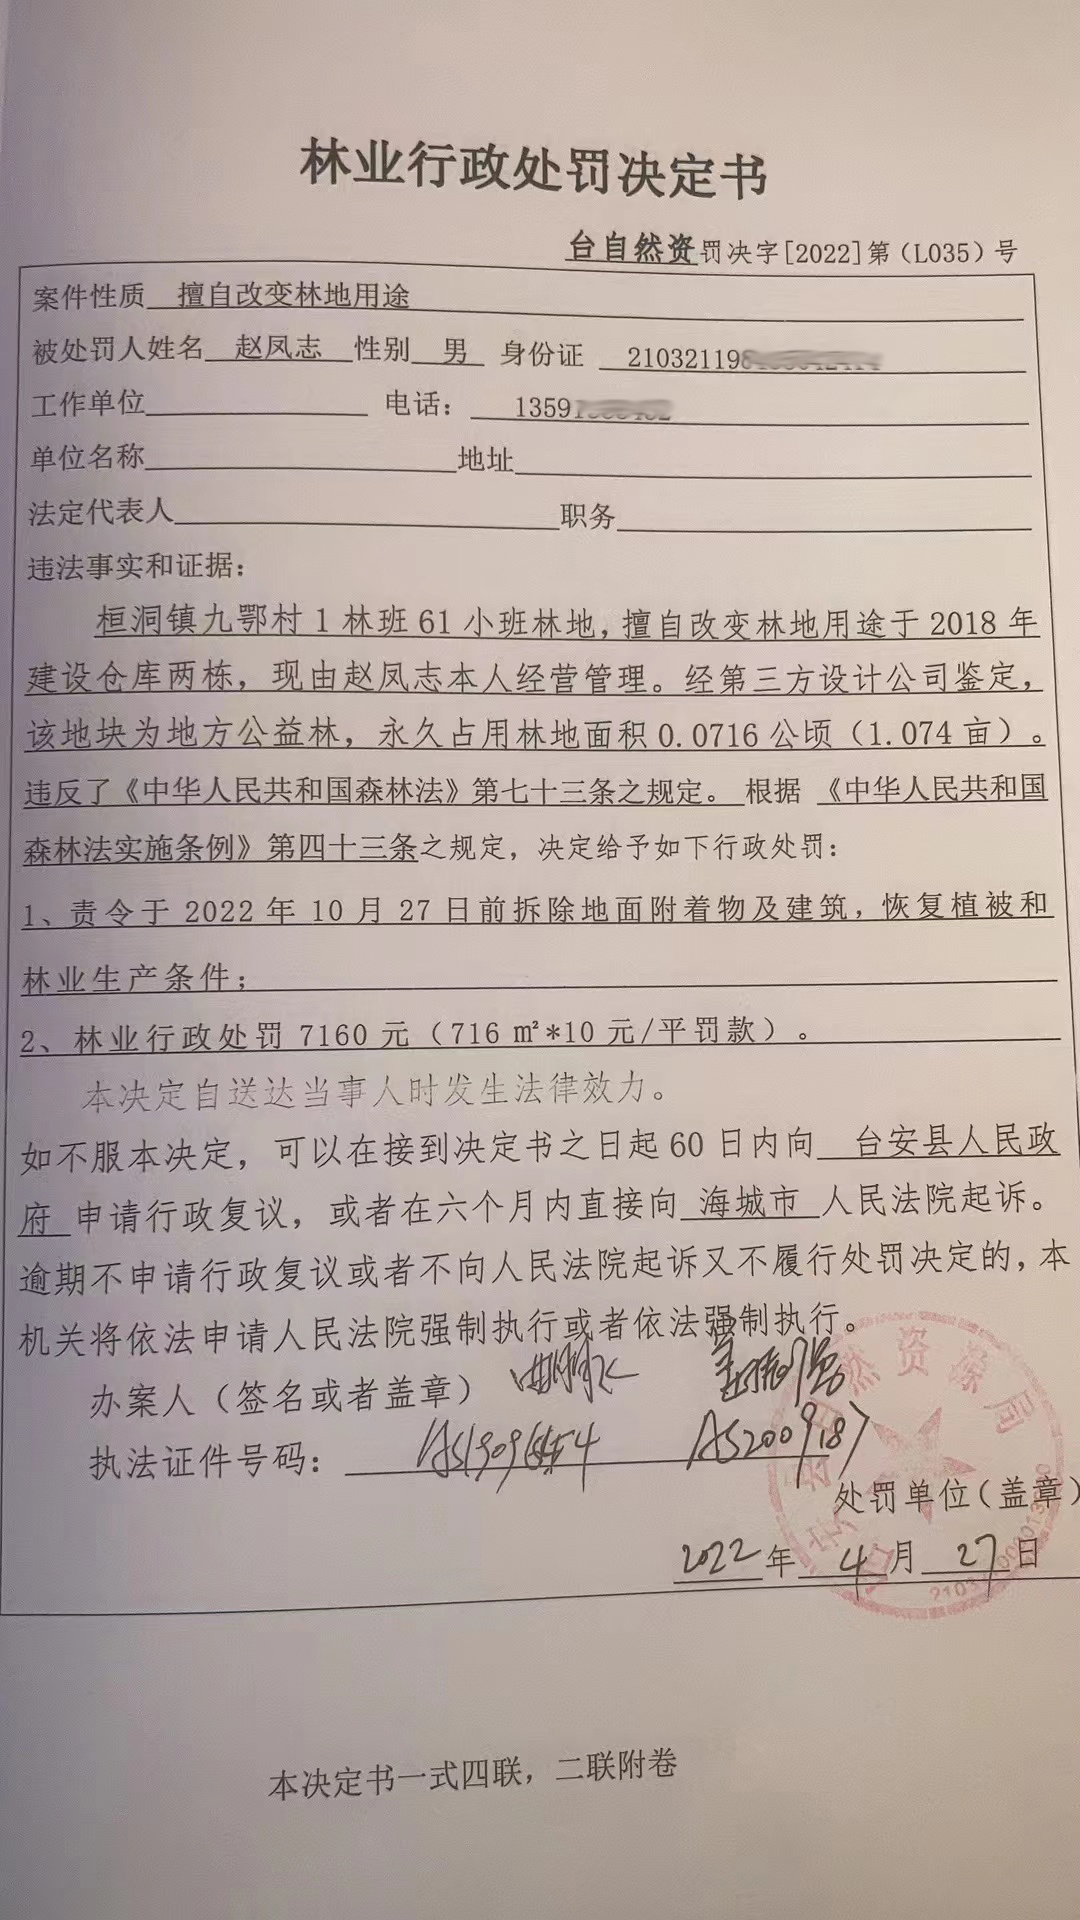 林业行政处罚决定书
台自然资罚决字[2022]第（L035）号
案件性质 擅自改变林地用途
被处罚人姓名 赵凤志 性别 男 身份证 210321198
工作单位 电话： 1359
单位名称 地址
法定代表人 职务
违法事实和证据：
桓洞镇九鄂村1林班61小班林地，擅自改变林地用途于2018年
建设仓库两栋，现由赵凤志本人经营管理。经第三方设计公司鉴定，
该地块为地方公益林，永久占用林地面积0.0716公顷（1.074亩）。
违反了《中华人民共和国森林法》第七十三条之规定。根据 《中华人民共和国
森林法实施条例》第四十三条之规定，决定给予如下行政处罚：
1、责令于2022年10月27日前拆除地面附着物及建筑，恢复植被和
林业生产条件；
2、林业行政处罚7160元（716㎡*10元/平罚款）。
本决定自送达当事人时发生法律效力。
如不服本决定，可以在接到决定书之日起60日内向 台安县人民政
府 申请行政复议，或者在六个月内直接向 海城市 人民法院起诉。
逾期不申请行政复议或者不向人民法院起诉又不履行处罚决定的，本
机关将依法申请人民法院强制执行或者依法强制执行。
办案人（签名或者盖章）
执法证件号码： AS2009187
处罚单位（盖章）
2022年 4月 27日
自然资源局
本决定书一式四联，二联附卷